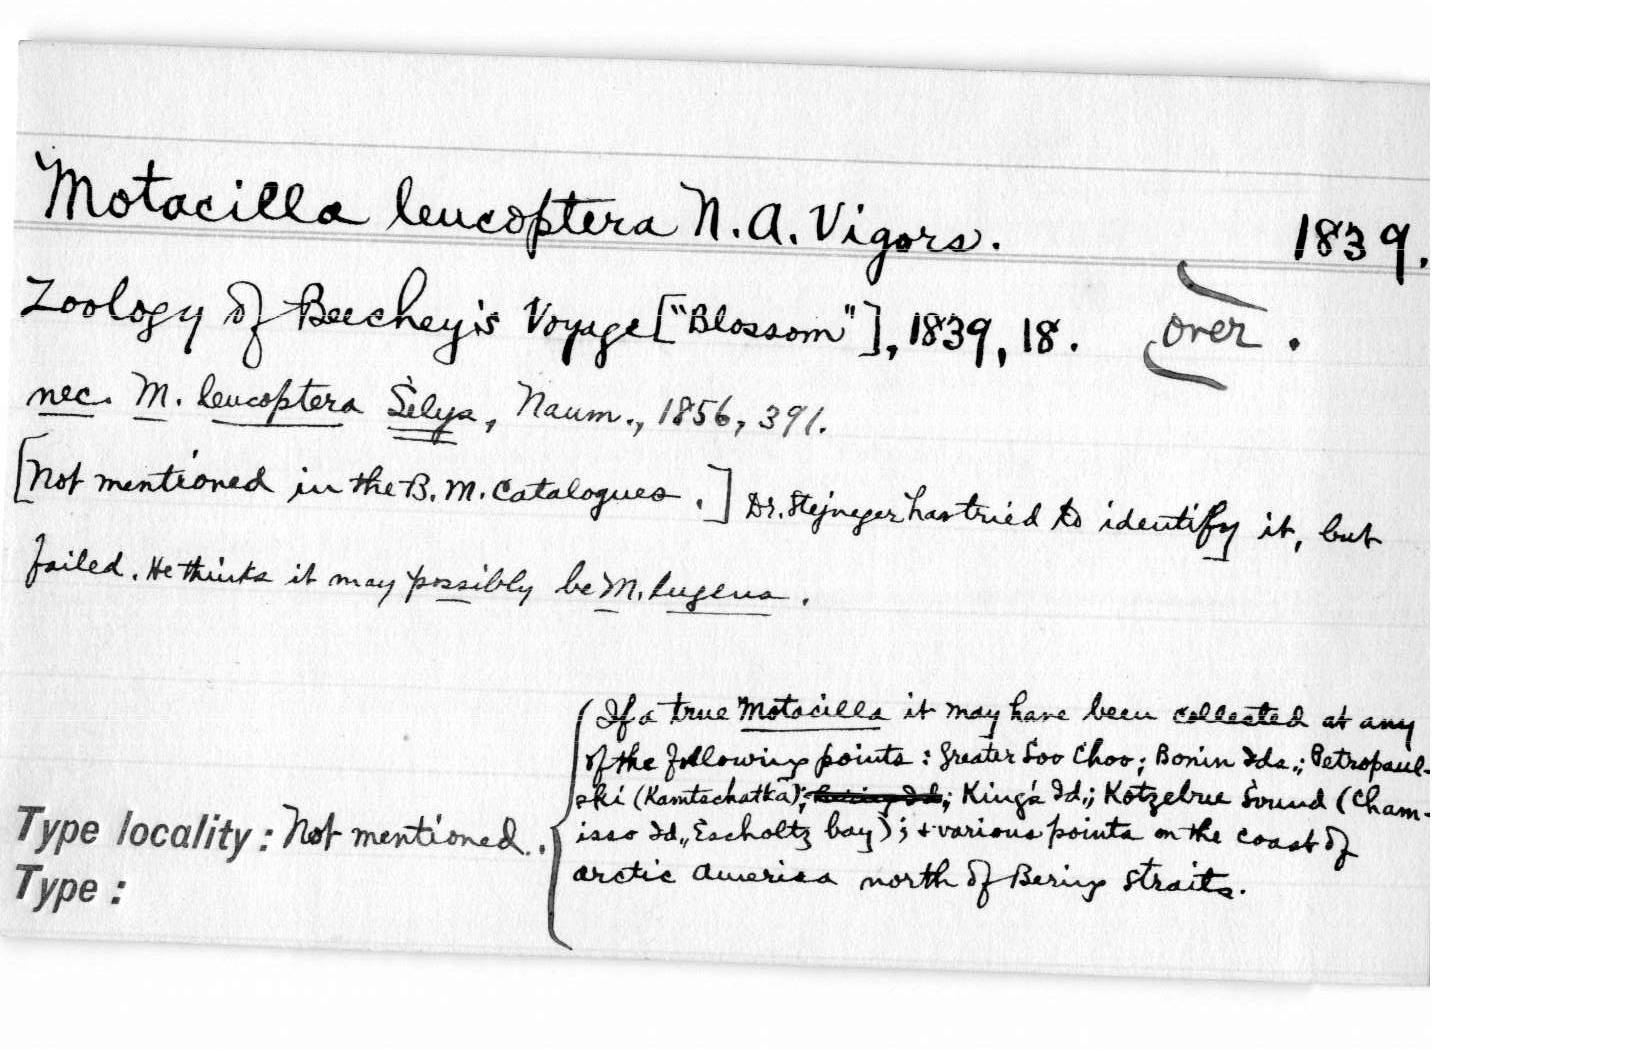 Motacilla leucoptera N.A. Vigors. 1839.
Zoology of Beechey's Voyage ["Blossom"], 1839, 18. (over.
nec. M. leucoptera Selys, Naum., 1856, 391.
[Not mentioned in the B.M. Catalogues.] Dr. Stejneger has tried to identify it, but
failed. He thinks it may possibly be M. lugens.
If a true Motacilla it may have been collected at any
of the following points: Greater Loo Choo; Bonin Ids.; Petropaul-
ski (Kamtschatka); King's Id.; Kotzebue Sound (Cham-
isso Id., Escholtz bay); + various points on the coast of
arctic America north of Bering Straits.
Type locality: Not mentioned.
Type: